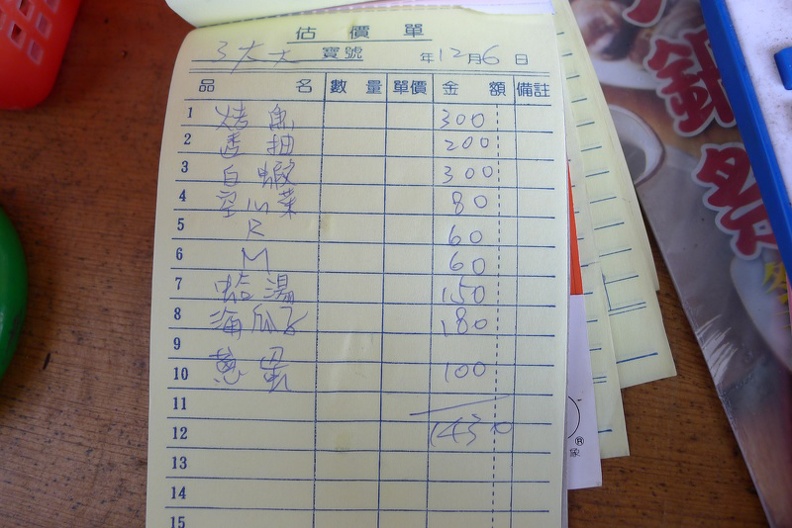 估價單
3大大 寶號 年12月6日
品名 數量 單價 金額 備註
1 烤魚 300
2 透抽 200
3 白蝦 300
4 空心菜 80
5 R 60
6 M 60
7 蛤湯 150
8 海瓜子 180
9
10 蔥蛋 100
11
12 1430
13
14
15